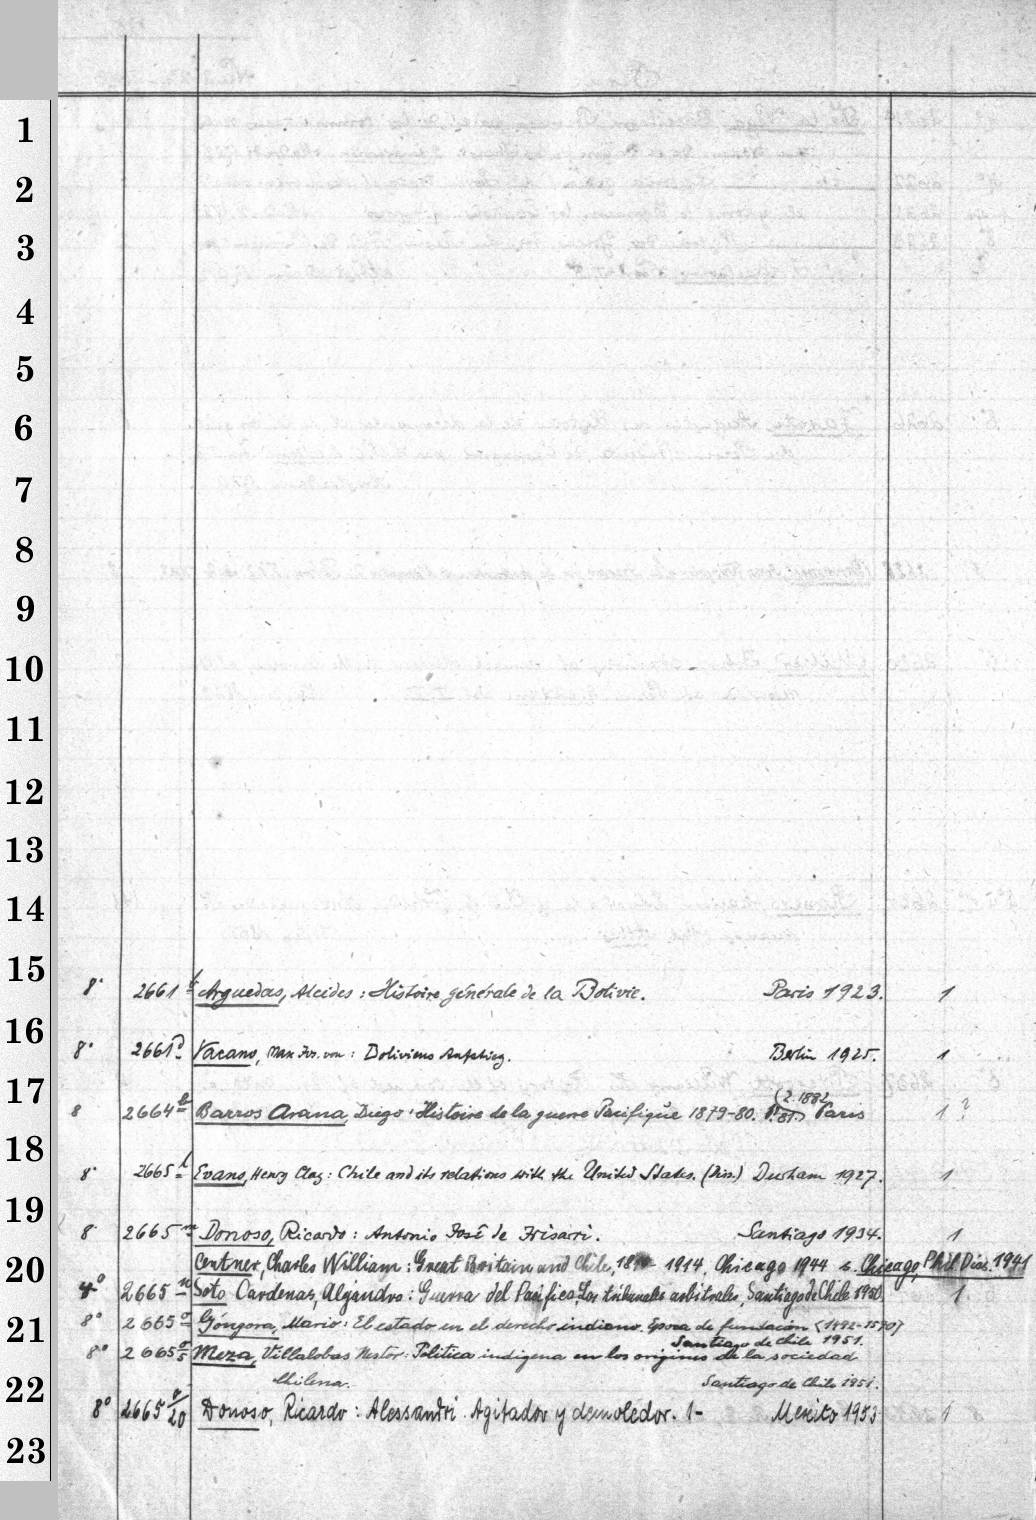 1
2
3
4
5
6
7
8
9
10
11
12
13
14
15
8° 2661 Arguedas, Alcides: Histoire générale de la Bolivie. Paris 1923. 1
16
8° 2661 Vacano, Max Jos. von: Boliviens Aufstieg. Berlin 1925. 1
17
(2. 1882
8 2664 Barros Arana, Diego: Histoire de la guerre Pacifique 1879-80. P. 81.) Paris 1?
18
8° 2665 Evans, Henry Clay: Chile and its relations with the United States. (Diss.) Durham 1927. 1
19
8 2665m Donoso, Ricardo: Antonio José de Irisarri. Santiago 1934. 1
20
Centner, Charles William: Great Britain and Chile, - 1914. Chicago 1944 s. Chicago, Phil Diss. 1941
4° 2665n Soto Cardenas, Alejandro: Guerra del Pacifico, Los tribunales arbitrales, Santiago de Chile 1950. 1
21
8° 2665o Góngora, Mario: El estado en el derecho indiano. Epoca de fundación (1492-1570)
Santiago de Chile 1951.
8° 2665 o/5 Meza, Villalobos Nestor: Politica indigena en los origines de la sociedad
22
Chilena. Santiago de Chile 1951.
8° 2665 /20 Donoso, Ricardo: Alessandri. Agitador y demoledor. 1- Mexico 1953 1
23